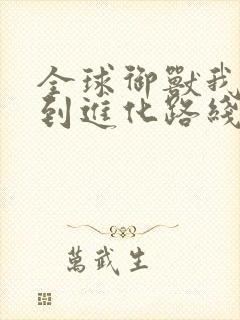 全球御獸我
到進化路綫
萬武生